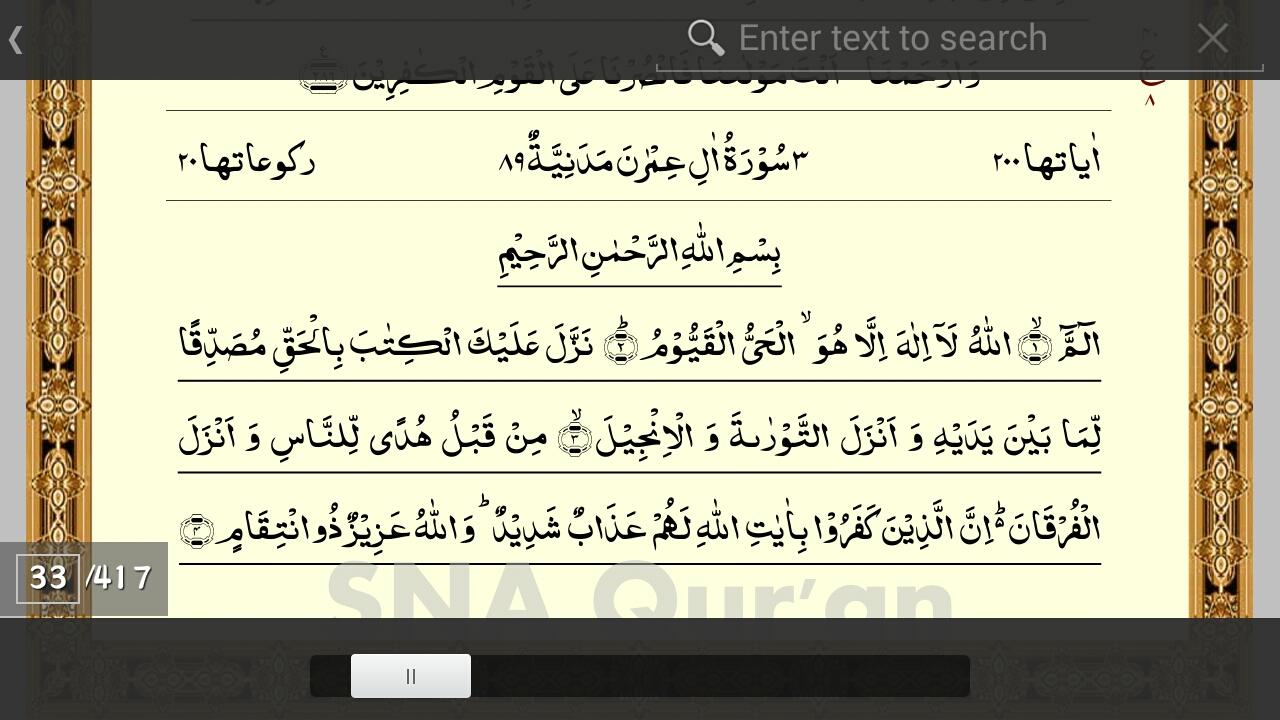 Enter text to search
وَارْحَمْنَا اَنْتَ مَوْلٰىنَا فَانْصُرْنَا عَلَى الْقَوْمِ الْكٰفِرِيْنَ
ع
٨
اٰیاتها ٢٠٠ ٣ سُوْرَةُ اٰلِ عِمْرٰنَ مَدَنِيَّةٌ ٨٩ ركوعاتها ٢٠
بِسْمِ اللّٰهِ الرَّحْمٰنِ الرَّحِيْمِ
الٓمَّٓ ۙ‏﴿١﴾ اللّٰهُ لَاۤ اِلٰهَ اِلَّا هُوَ ۙ الْحَىُّ الْقَيُّوْمُ ؕ‏﴿٢﴾ نَزَّلَ عَلَيْكَ الْكِتٰبَ بِالْحَقِّ مُصَدِّقًا
لِّمَا بَيْنَ يَدَيْهِ وَ اَنْزَلَ التَّوْرٰٮةَ وَ الْاِنْجِيْلَ ۙ‏﴿٣﴾ مِنْ قَبْلُ هُدًى لِّلنَّاسِ وَ اَنْزَلَ
الْفُرْقَانَ ؕ اِنَّ الَّذِيْنَ كَفَرُوْا بِاٰيٰتِ اللّٰهِ لَهُمْ عَذَابٌ شَدِيْدٌ ؕ وَ اللّٰهُ عَزِيْزٌ ذُو انْتِقَامٍ ‏﴿٤﴾
33 /417
SNA Qur’an